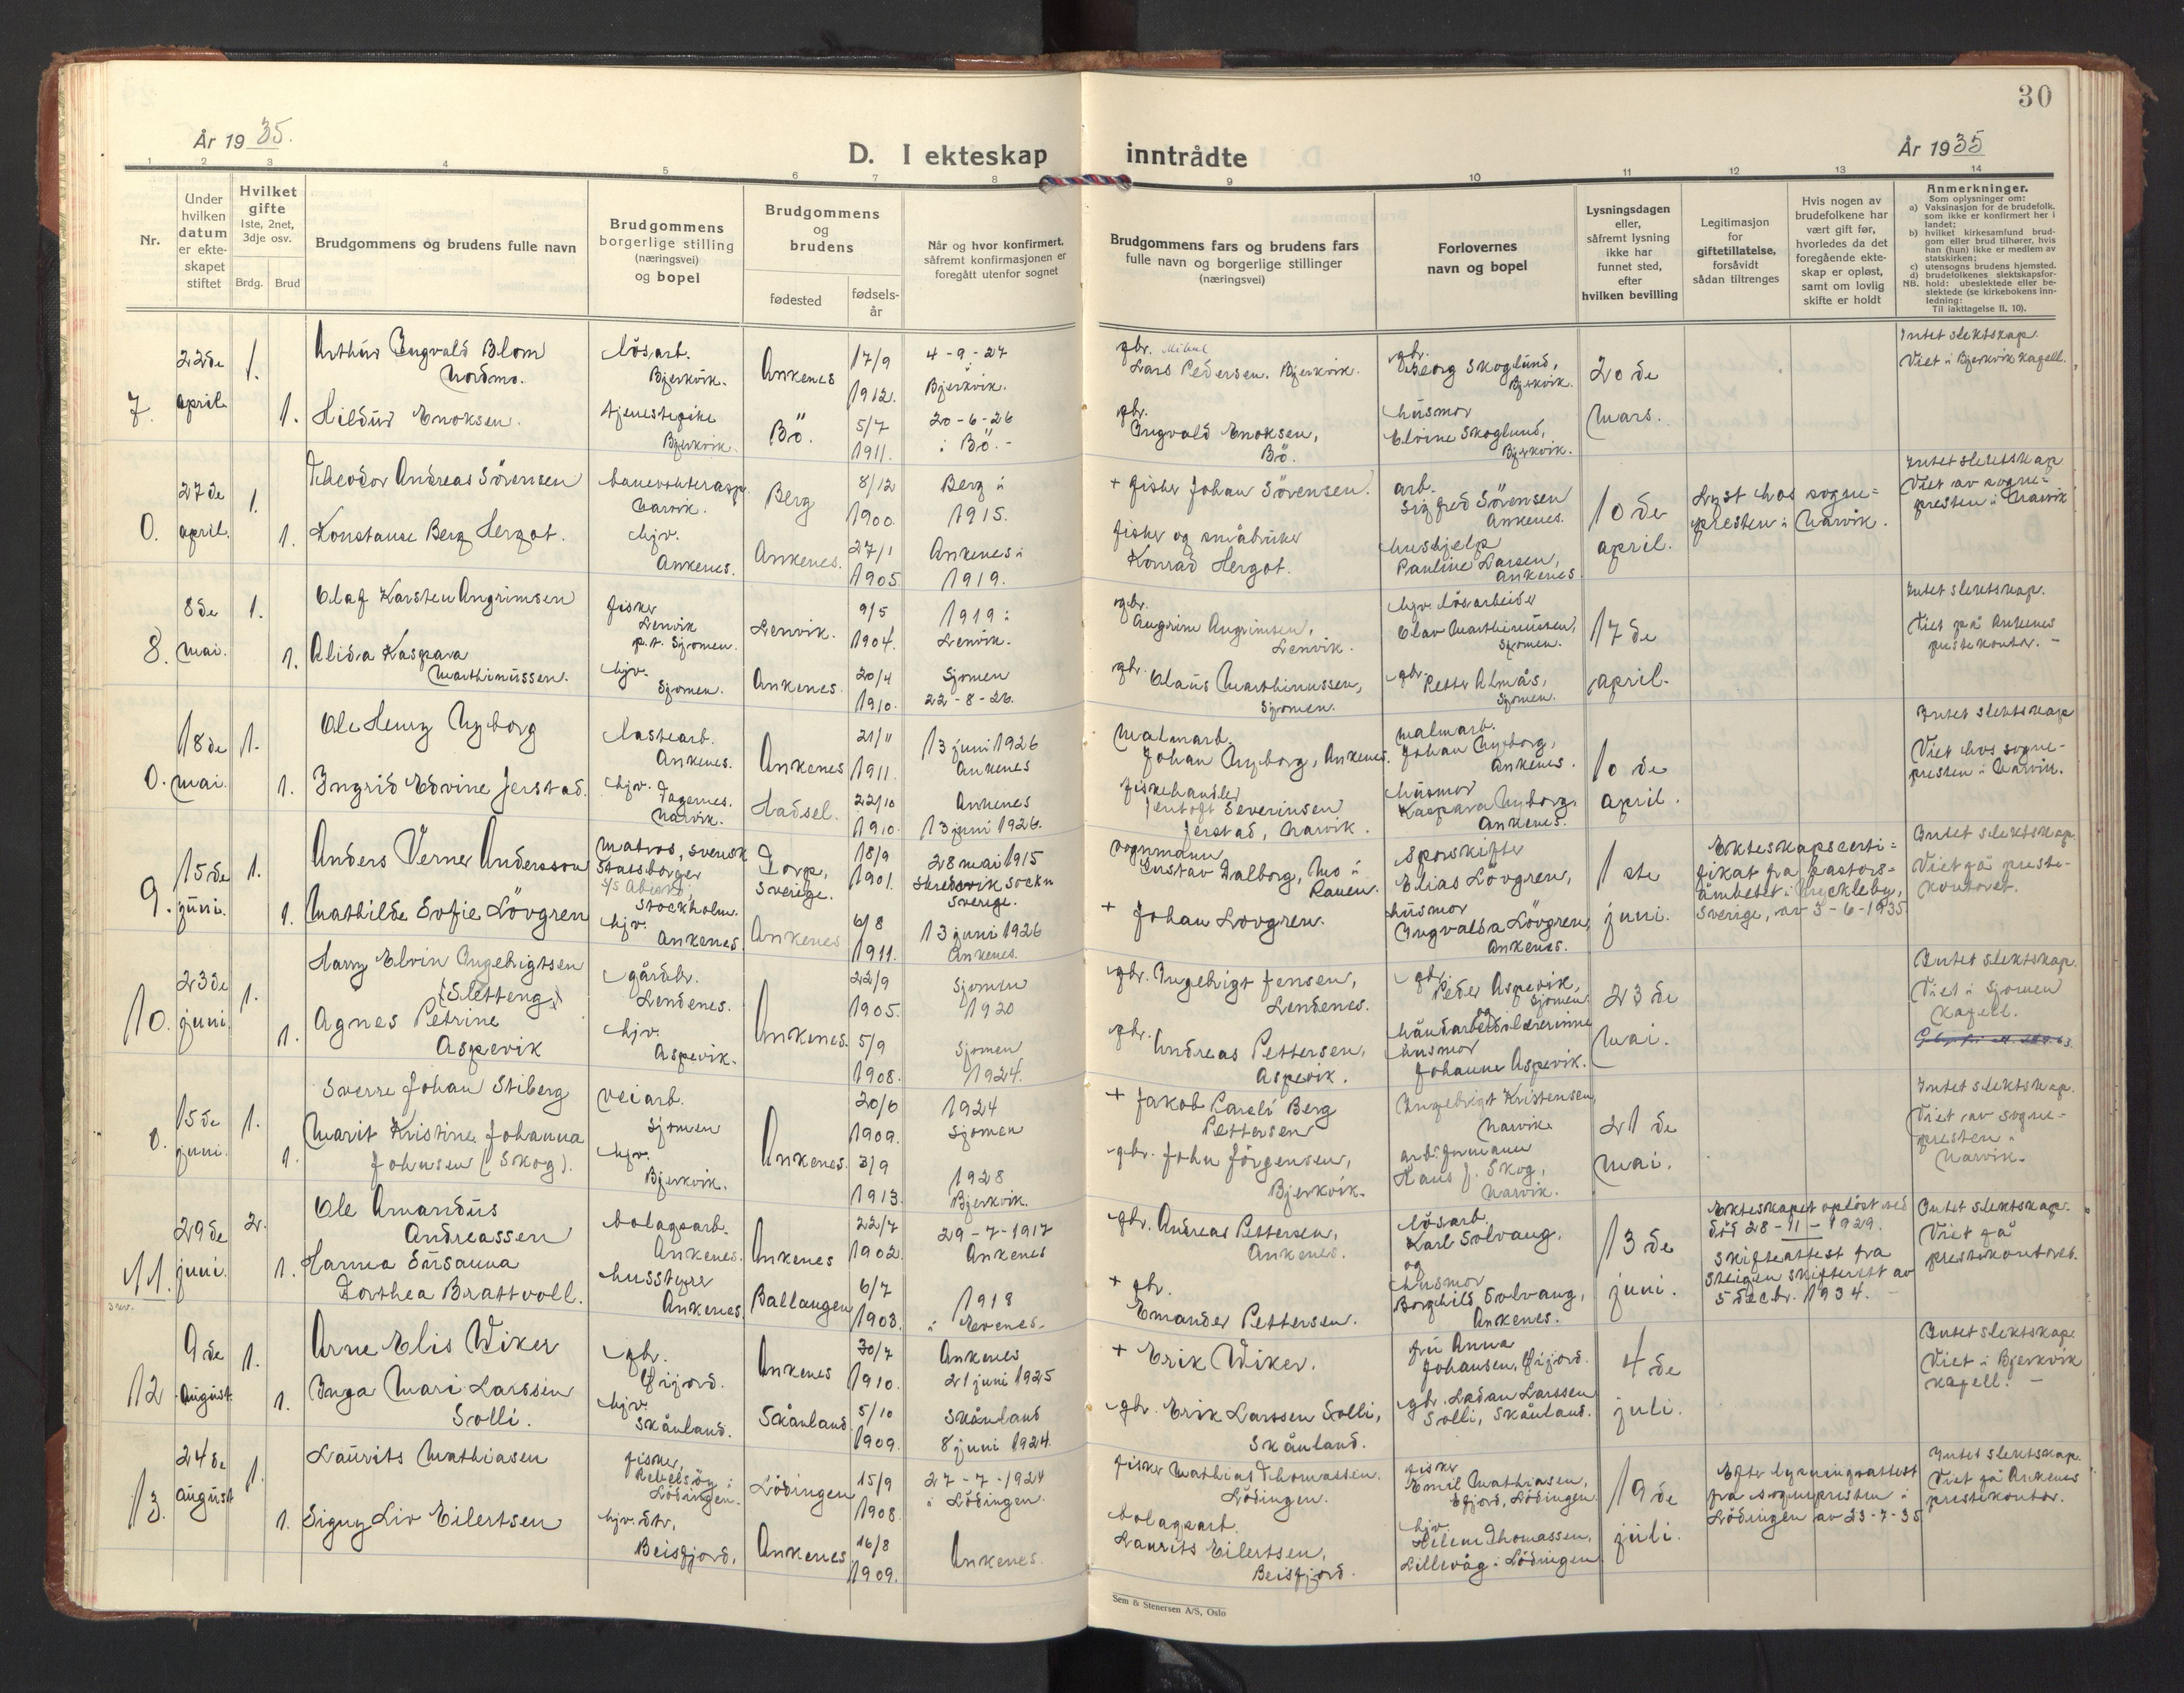 30
År 1935.
År 1935
D. I ekteskap inntrådte
1 2 3 4 5 6 7 8 9 10 11 12 13 14
Nr.
Under hvilken datum er ekteskapet stiftet
Hvilket gifte
1ste, 2net, 3dje osv.
Brdg. Brud
Brudgommens og brudens fulle navn
Brudgommens borgerlige stilling (næringsvei) og bopel
Brudgommens og brudens
fødested
fødsels-år
Når og hvor konfirmert, såfremt konfirmasjonen er foregått utenfor sognet
Brudgommens fars og brudens fars fulle navn og borgerlige stillinger (næringsvei)
Forlovernes navn og bopel
Lysningsdagen eller, såfremt lysning ikke har funnet sted, efter hvilken bevilling
Legitimasjon for giftetillatelse, forsåvidt sådan tiltrenges
Hvis nogen av brudefolkene har vært gift før, hvorledes da det foregående ekteskap er opløst, samt om lovlig skifte er holdt
Anmerkninger.
Som oplysninger om:
a) Vaksinasjon for de brudefolk, som ikke er konfirmert her i landet;
b) hvilket kirkesamfund brudgom eller brud tilhører, hvis han (hun) ikke er medlem av statskirken;
c) utensogns brudens hjemsted.
d) brudefolkenes slektskapsforhold: ubeslektede eller beslektede (se kirkebokens innledning:
NB.
Til iakttagelse II, 10).
7. 22de april 1. Arthur Ingvald Blom Nordmo. løsarb. Bjerkvik. Ankenes 17/9 1912. 4-9-27 i Bjerkvik. gbr. Mikal Lars Pedersen. Bjerkvik. gbr. Georg Skoglund, Bjerkvik. 20de Mars. Intet slektskap. Viet i Bjerkvik kapell.
1. Hildur Enoksen. tjenestepike Bjerkvik. Bö. 5/7 1911. 20-6-26 i Bö.- gbr. Ingvald Enoksen, Bö. husmor Elvine Skoglund, Bjerkvik.
0. 27de april. 1. Theodor Andreas Sörensen Narvik. Berg 8/12 1900. Berg i 1915. + fisker Johan Sörensen. arb. Sigfred Sörensen Ankenes. 10de april. Lyst hos sogne=presten i Narvik. Intet slektskap Viet av sogne=presten i Narvik
1. Konstanse Berg Hergot. hjv. Ankenes. Ankenes. 27/1 1905. Ankenes i 1919. fisker og småbruker Konrad Hergot. hushjelp Pauline Larsen, Ankenes.
8. 8de mai. 1. Olaf Karsten Angrimsen fisker Lenvik p.t. Sjomen. Lenvik. 9/5 1904. 1919 i Lenvik. gbr. Angrim Angrimsen, Lenvik. løsarbeider Olav Marthinussen, Sjomen. 17de april. Intet slektskap. Viet på Ankenes prestekontor. -
1. Alida Kaspara Marthinussen. hjv. Sjomen. Ankenes. 20/4 1910. Sjomen 22-8-26. gbr. Olaus Marthinussen, Sjomen. gbr. Petter Almås, Sjomen.
0. 18de mai. 1. Ole Henry Nyborg lastearb. Ankenes. Ankenes 21/11 1911. 13 juni 1926 Ankenes Malmarb. Johan Nyborg, Ankenes. malmarb. Johan Nyborg, Ankenes. 10de april. Intet slektskap Viet hos sogne-presten i Narvik.
1. Ingrid Edvine Jerstad. hjv. Fagernes. Narvik. Hadsel. 22/10 1910. Ankenes 13 juni 1926. fiskehandler Jentoft Severinsen Jerstad, Narvik. husmor Kaspara Nyborg. Ankenes.
9. 15de juni. 1. Anders Verner Andersson matros, svensk statsborger Stockholm. Torp, Sverige. 18/9 1901. 28 mai 1915 Sverige. vognmann Gustav Dalborg, Mo i Ranen. Sporskifter Elias Lövgren, 1ste juni. Ekteskapscerti=fikat fra pastors=ämbetet i Myckleby, Sverige, av 3-6-1935. Intet slektskap. Viet på preste-kontoret.
1. Mathilde Sofie Lövgren hjv. Ankenes. Ankenes 6/8 1911. 13 juni 1926 Ankenes. + Johan Lövgren. husmor Ingvalda Lövgren, Ankenes.
10. 23de juni. 1. Harry Elvin Ingebrigtsen (Sletteng) gårdbr. Lendenes. Ankenes. 22/9 1905. Sjomen 1920 gbr. Ingebrigt Jensen, Lendenes. gbr. Peder Aspevik, Sjomen. og 23de Mai. Intet slektskap. Viet i Sjomen kapell.
1. Agnes Petrine Aspevik hjv. Aspevik. 5/9 1908. Sjomen 1924. gbr. Andreas Pettersen, Aspevik. håndarbeidslærerinne husmor Johanne Aspevik.
0. 15de juni. 1. Sverre Johan Stiberg veiarb. Sjomen Ankenes. 20/6 1909. 1924 Sjomen + Jakob Pareli Berg Pettersen Ingebrigt Kristensen, Narvik 21de Mai. Intet slektskap. Viet av sogne-presten i Narvik.
1. Marit Kristine Johanna Johnsen (Skog). hjv. Bjerkvik. 3/9 1913. 1928 Bjerkvik. gbr. John Jörgensen, Bjerkvik. arb.formann Hans J. Skog, Narvik.
11. 29de juni. 2. Ole Amandus Andreassen bolagsarb. Ankenes. Ankenes 22/7 1902. 29-7-1917 Ankenes gbr. Andreas Pettersen, Ankenes. løsarb. Karl Solvang, og 13de juni. Ekteskapet opløst ved död 28-11-1929. Skifteattest fra Steigen skifterett av 5 decbr. 1934. Intet slektskap. Viet på prestekontoret.
1. Hanna Susanna Dorthea Brattvoll. husstyrer Ankenes Ballangen 6/7 1903. 1918 i Evenes. + gbr. Emander Pettersen. husmor Borghild Solvang, Ankenes.
12 9de August. 1. Arne Elis Wiker gbr. Öijord. Ankenes 30/7 1910. Ankenes 21 juni 1925 + Erik Wiker. fru Anna Johansen, Öijord. 4de juli. Intet slektskap. Viet i Bjerkvik kapell. -
1. Inga Mari Larssen Solli. hjv. Skånland. Skånland. 5/10 1909. Skånland 8 juni 1924. gbr. Erik Larssen Solli, Skånland. gbr. Ladan Larssen Solli, Skånland.
13. 24de august 1. Laurits Mathiasen fisker, Lödingen. Lödingen 15/9 1908. 27-7-1924 i Lödingen. fisker Mathias Thomassen. Lödingen. fisker Emil Mathiasen, Efjord, Lödingen. 19de juli. Efter lysningsattest fra sognepresten i Lödingen av 23-7-35 Intet slektskap. Viet på Ankenes prestekontor.
1. Signy Liv Eilertsen hjv. dtr, Beisfjord, Ankenes 16/8 1909. Ankenes. bolagsarb. Laurits Eilertsen, Beisfjord. hjv. Helene Thomassen, Lillevåg i Lödingen
Sem & Stenersen A/S, Oslo